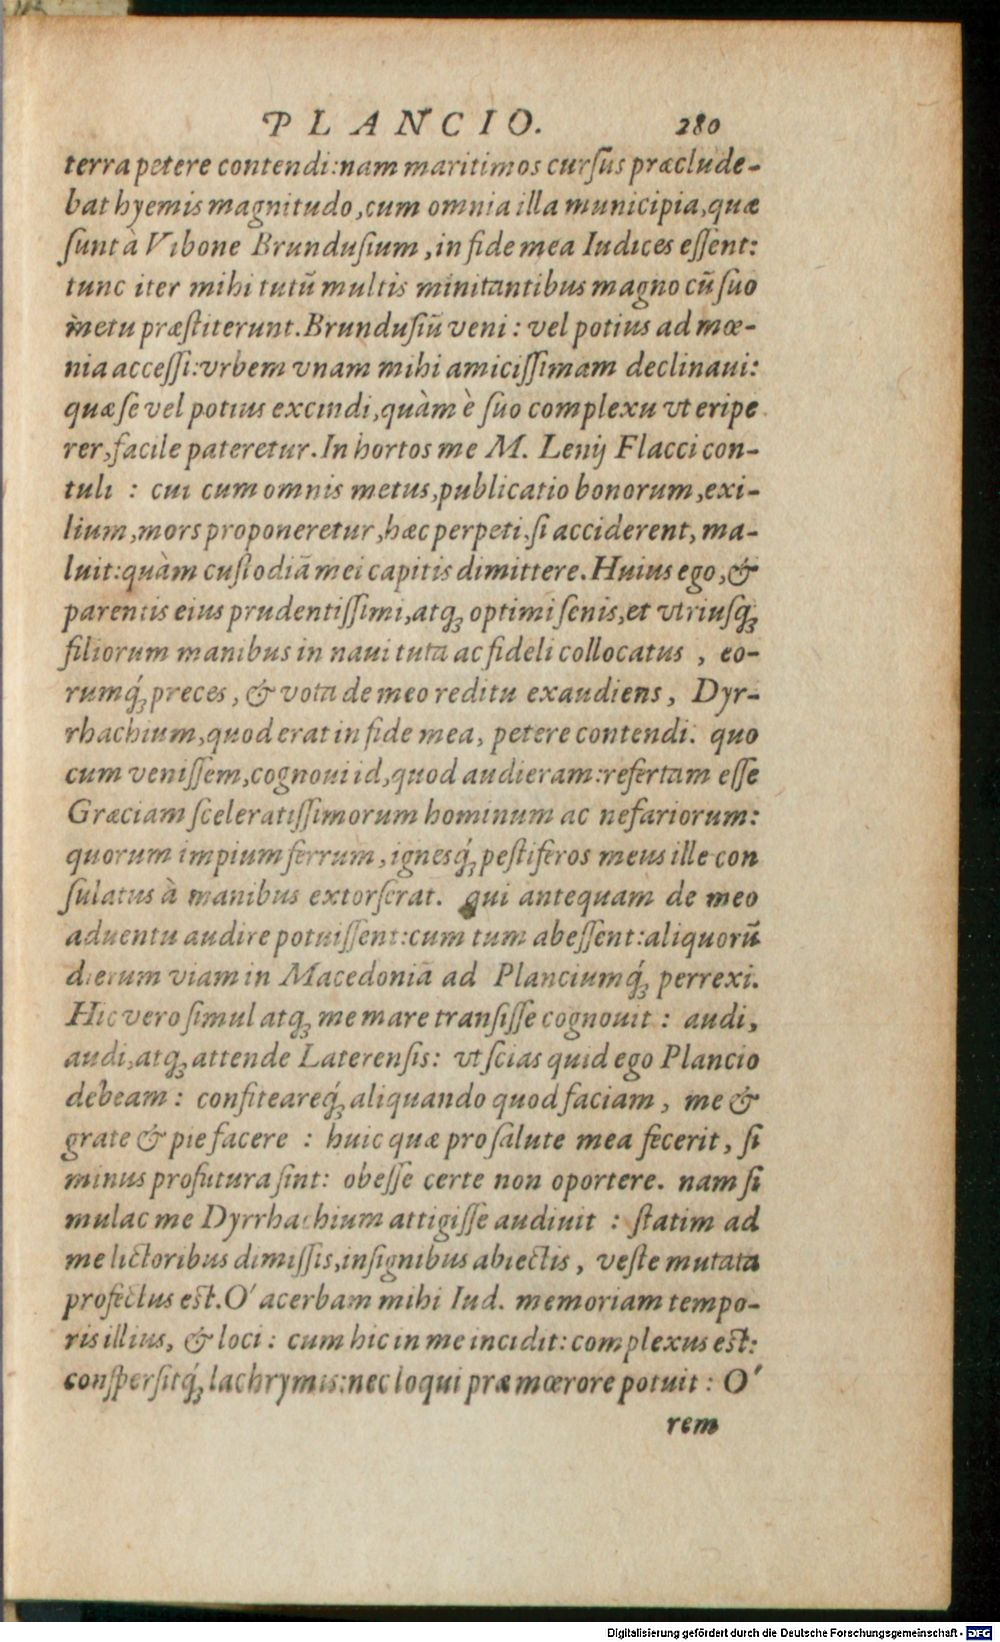 PLANCIO. 280
terra petere contendi: nam maritimos cursus præclude-
bat hyemis magnitudo, cum omnia illa municipia, quæ
sunt à Vibone Brundusium, in fide mea Iudices essent:
tunc iter mihi tutū multis minitantibus magno cū suo
metu præstiterunt. Brundusiū veni: vel potius ad mœ-
nia accessi: vrbem vnam mihi amicissimam declinaui:
quæ se vel potius excindi, quàm è suo complexu vt eripe
rer, facile pateretur. In hortos me M. Lenij Flacci con-
tuli : cui cum omnis metus, publicatio bonorum, exi-
lium, mors proponeretur, hæc perpeti, si acciderent, ma-
luit: quàm custodiā mei capitis dimittere. Huius ego, &
parentis eius prudentissimi, atq; optimi senis, et vtriusq;
filiorum manibus in naui tuta ac fideli collocatus , eo-
rumq́; preces, & vota de meo reditu exaudiens, Dyr-
rhachium, quod erat in fide mea, petere contendi. quo
cum venissem, cognoui id, quod audieram: refertam esse
Græciam sceleratissimorum hominum ac nefariorum:
quorum impium ferrum, ignesq́; pestiferos meus ille con
sulatus à manibus extorserat. qui antequam de meo
aduentu audire potuissent: cum tum abessent: aliquorū
dierum viam in Macedoniā ad Planciumq́; perrexi.
Hic vero simul atq; me mare transisse cognouit : audi,
audi, atq; attende Laterensis: vt scias quid ego Plancio
debeam : confiteareq́; aliquando quod faciam, me &
grate & pie facere : huic quæ pro salute mea fecerit, si
minus profutura sint: obesse certe non oportere. nam si
mulac me Dyrrhachium attigisse audiuit : statim ad
me lictoribus dimissis, insignibus abiectis, veste mutata
profectus est. O´ acerbam mihi Iud. memoriam tempo-
ris illius, & loci : cum hic in me incidit: complexus est:
conspersitq́; lachrymis: nec loqui præ mœrore potuit : O´
rem
Digitalisierung gefördert durch die Deutsche Forschungsgemeinschaft - DFG